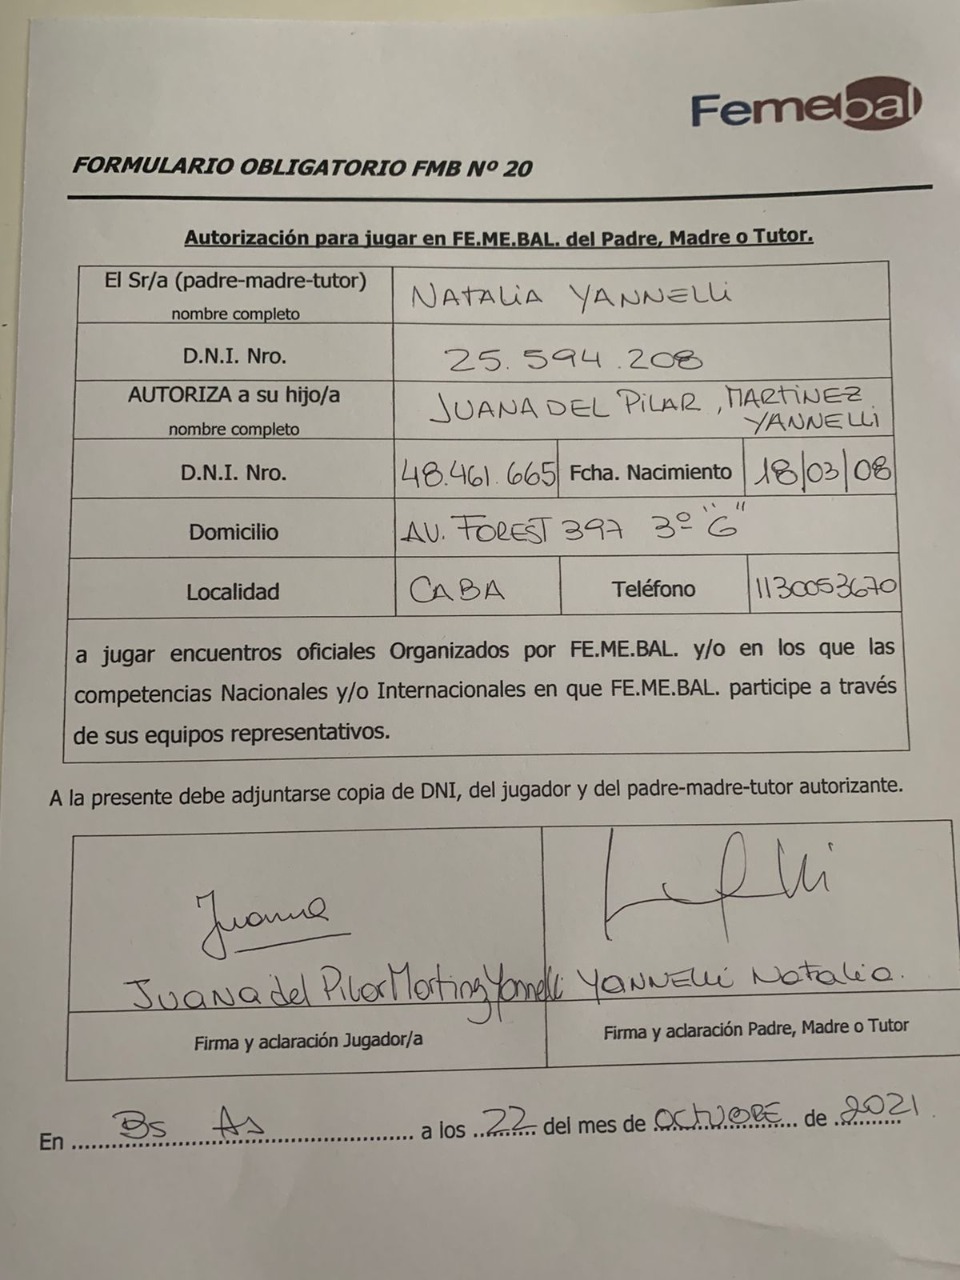 Femebal
FORMULARIO OBLIGATORIO FMB Nº 20
Autorización para jugar en FE.ME.BAL. del Padre, Madre o Tutor.
El Sr/a (padre-madre-tutor)
nombre completo
NATALIA YANNELLI
D.N.I. Nro.
25.594.208
AUTORIZA a su hijo/a
nombre completo
JUANA DEL PILAR, MARTINEZ
YANNELLI
D.N.I. Nro. 48.461.665 Fcha. Nacimiento 18/03/08
Domicilio AV. FOREST 397 3º "G"
Localidad CABA Teléfono 1130053670
a jugar encuentros oficiales Organizados por FE.ME.BAL. y/o en los que las
competencias Nacionales y/o Internacionales en que FE.ME.BAL. participe a través
de sus equipos representativos.
A la presente debe adjuntarse copia de DNI, del jugador y del padre-madre-tutor autorizante.
Juana
Juana del Pilar Martinez Yannelli
YANNELLI Natalia.
Firma y aclaración Jugador/a
Firma y aclaración Padre, Madre o Tutor
En Bs As a los 22 del mes de OCTUBRE de 2021.